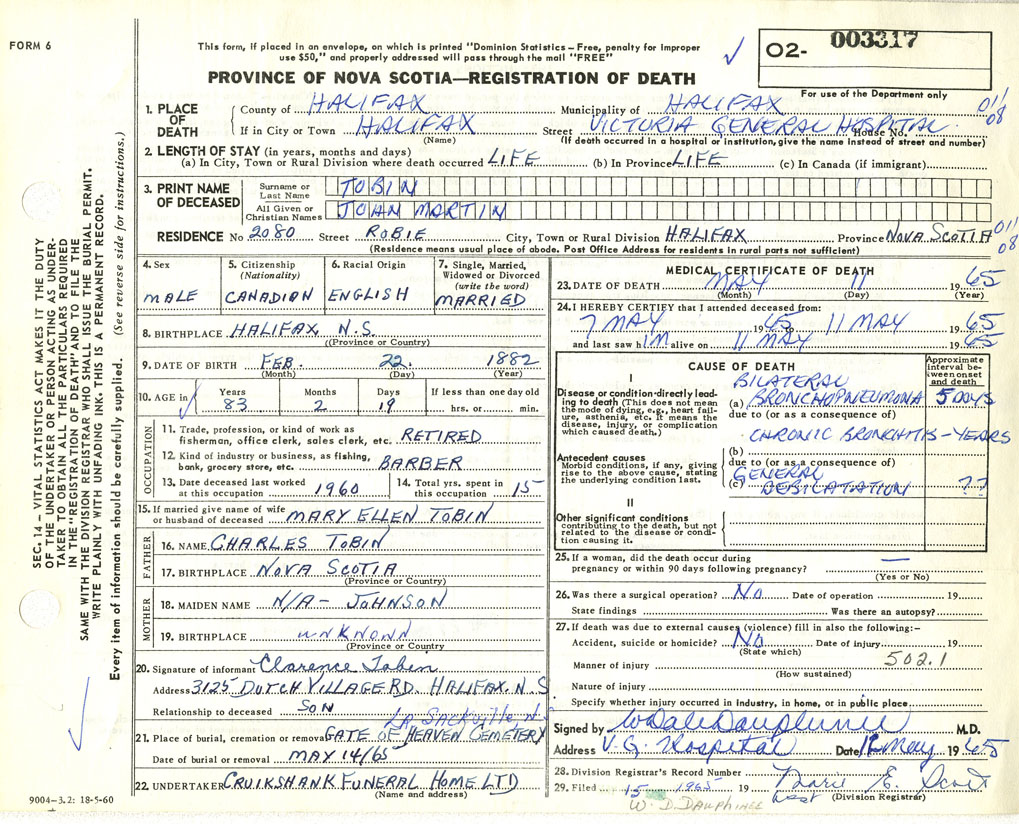 FORM 6
This form, if placed in an envelope, on which is printed "Dominion Statistics – Free, penalty for improper
use $50," and properly addressed will pass through the mail "FREE"
PROVINCE OF NOVA SCOTIA—REGISTRATION OF DEATH
O2- 003317
For use of the Department only
1. PLACE OF DEATH
County of HALIFAX Municipality of HALIFAX 011/08
If in City or Town HALIFAX Street VICTORIA GENERAL HOSPITAL House No.
(Name) (If death occurred in a hospital or institution, give the name instead of street and number)
2. LENGTH OF STAY (in years, months and days)
(a) In City, Town or Rural Division where death occurred LIFE (b) In Province LIFE (c) In Canada (if immigrant)
3. PRINT NAME OF DECEASED
Surname or Last Name TOBIN
All Given or Christian Names JOHN MARTIN
RESIDENCE No 2080 Street ROBIE City, Town or Rural Division HALIFAX Province NOVA SCOTIA 011/08
(Residence means usual place of abode. Post Office Address for residents in rural parts not sufficient)
4. Sex
MALE
5. Citizenship
(Nationality)
CANADIAN
6. Racial Origin
ENGLISH
7. Single, Married,
Widowed or Divorced
(write the word)
MARRIED
8. BIRTHPLACE HALIFAX, N.S.
(Province or Country)
9. DATE OF BIRTH FEB. 22. 1882
(Month) (Day) (Year)
10. AGE in
Years Months Days If less than one day old
83 2 19 hrs. or min.
OCCUPATION
11. Trade, profession, or kind of work as
fisherman, office clerk, sales clerk, etc. RETIRED
12. Kind of industry or business, as fishing,
bank, grocery store, etc. BARBER
13. Date deceased last worked
at this occupation 1960
14. Total yrs. spent in
this occupation 15
15. If married give name of wife
or husband of deceased MARY ELLEN TOBIN
FATHER
16. NAME CHARLES TOBIN
17. BIRTHPLACE NOVA SCOTIA
(Province or Country)
MOTHER
18. MAIDEN NAME N/A - JOHNSON
19. BIRTHPLACE UNKNOWN
(Province or Country)
20. Signature of informant Clarence Tobin
Address 3125 DUTCH VILLAGE RD. HALIFAX. N.S
Relationship to deceased SON
Lr. Sackville, N.S
21. Place of burial, cremation or removal GATE OF HEAVEN CEMETERY
Date of burial or removal MAY 14/65
22. UNDERTAKER CRUIKSHANK FUNERAL HOME LTD
(Name and address)
MEDICAL CERTIFICATE OF DEATH
23. DATE OF DEATH MAY 11 19 65
(Month) (Day) (Year)
24. I HEREBY CERTIFY that I attended deceased from:
7 MAY 1965 11 MAY 1965
and last saw him alive on 11 MAY 1965
CAUSE OF DEATH
Approximate interval between onset and death
I
Disease or condition directly leading to death (This does not mean
the mode of dying, e.g., heart failure, asthenia, etc. It means the
disease, injury, or complication
which caused death.)
BILATERAL
(a) BRONCHOPNEUMONIA 5 DAYS
due to (or as a consequence of)
CHRONIC BRONCHITIS - YEARS
Antecedent causes
Morbid conditions, if any, giving
rise to the above cause, stating
the underlying condition last.
(b)
due to (or as a consequence of)
GENERAL
(c) DEBILATATION ??
II
Other significant conditions
contributing to the death, but not
related to the disease or condition causing it.
25. If a woman, did the death occur during
pregnancy or within 90 days following pregnancy? —
(Yes or No)
26. Was there a surgical operation? No Date of operation 19
State findings Was there an autopsy?
27. If death was due to external causes (violence) fill in also the following:-
Accident, suicide or homicide? NO Date of injury 19
(State which)
Manner of injury 502.1
(How sustained)
Nature of injury
Specify whether injury occurred in industry, in home, or in public place
Signed by W Dale Dauphinee M.D.
Address V.G. Hospital Date 12 May 1965
28. Division Registrar's Record Number
29. Filed 15 1965 19 Marie E. Scott
(Division Registrar)
W. D. DAUPHINEE
SEC. 14 – VITAL STATISTICS ACT MAKES IT THE DUTY
OF THE UNDERTAKER OR PERSON ACTING AS UNDER-
TAKER TO OBTAIN ALL THE PARTICULARS REQUIRED
IN THE "REGISTRATION OF DEATH" AND TO FILE THE
SAME WITH THE DIVISION REGISTRAR WHO SHALL ISSUE THE BURIAL PERMIT.
WRITE PLAINLY WITH UNFADING INK. THIS IS A PERMANENT RECORD.
Every item of information should be carefully supplied. (See reverse side for instructions.)
9004–3.2: 18-5-60